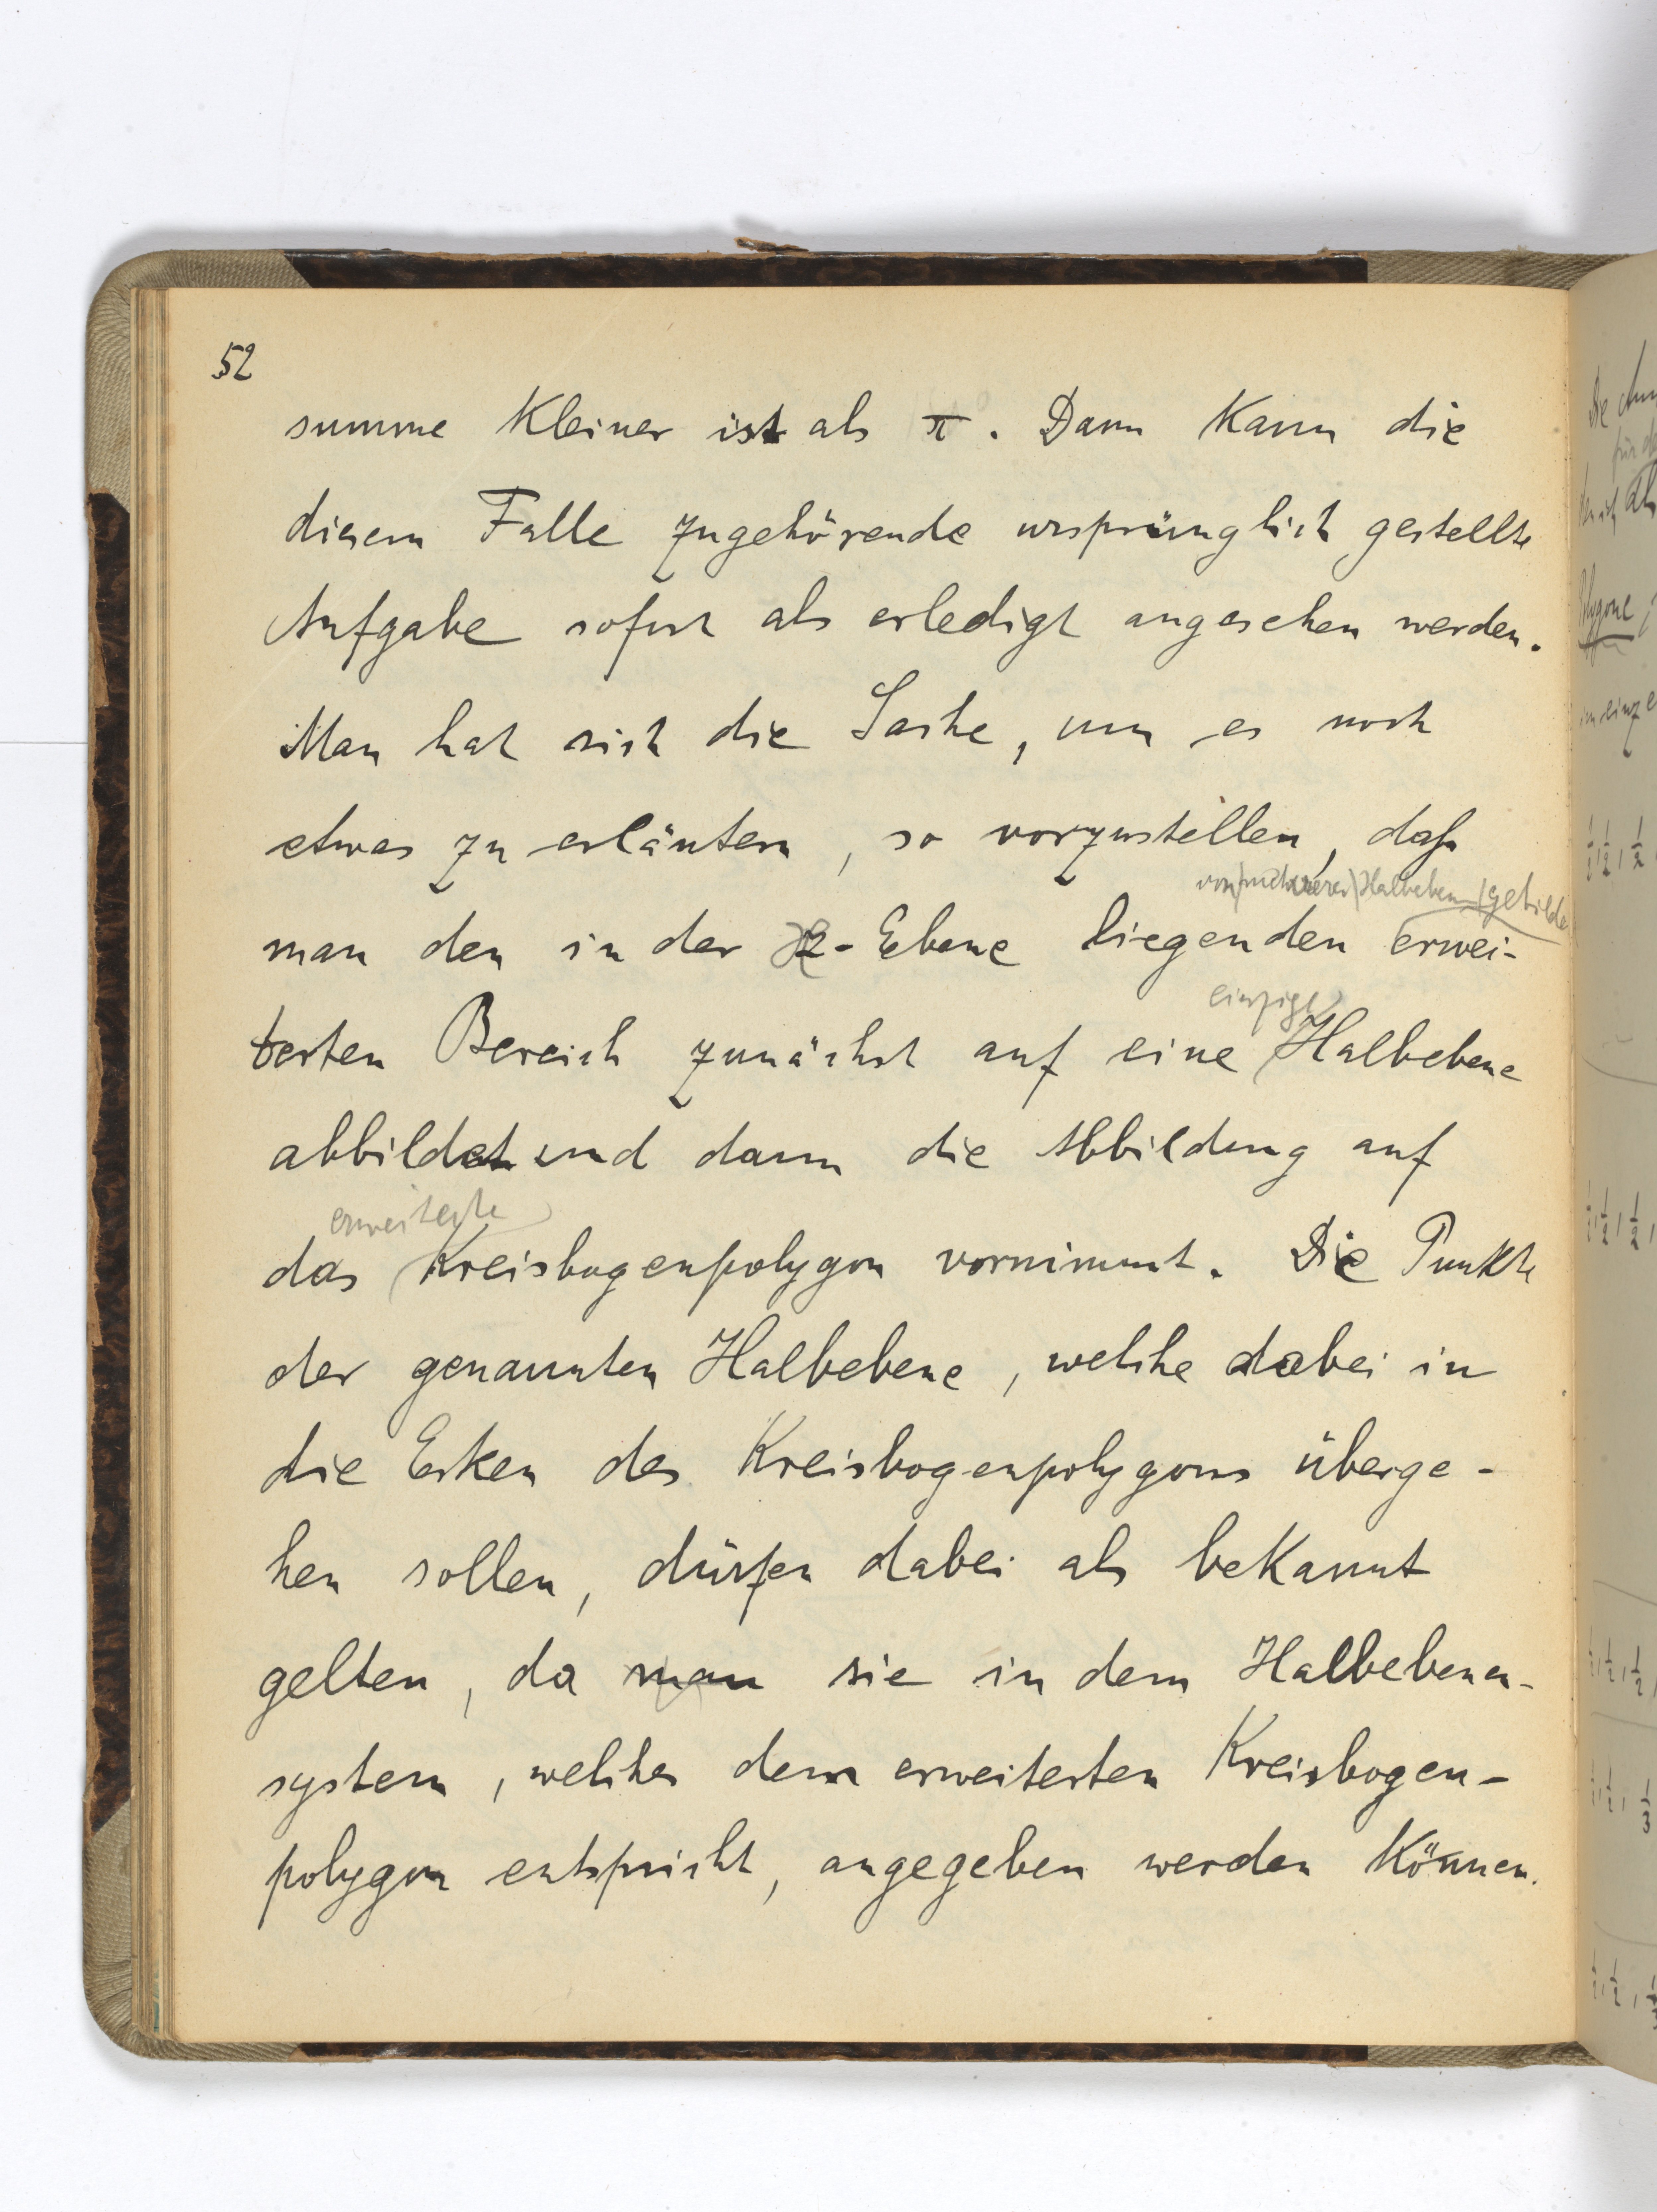 52
summe kleiner ist als π. Dann kann die
diesem Falle zugehörende ursprünglich gestellte
Aufgabe sofort als erledigt angesehen werden.
Man hat sich die Sache, um es noch
etwas zu erläutern, so vorzustellen, daß
von mehreren Halbebenen gebilde
man den in der z-Ebene liegenden erwei-
einzige
terten Bereich zunächst auf eine Halbebene
abbildet und dann die Abbildung auf
erweiterte
das Kreisbogenpolygon vornimmt. Die Punkte
der genannten Halbebene, welche dabei in
die Ecken des Kreisbogenpolygons überge-
hen sollen, dürfen dabei als bekannt
gelten, da man sie in dem Halbebenen-
system, welches dem erweiterten Kreisbogen-
polygon entspricht, angegeben werden können.